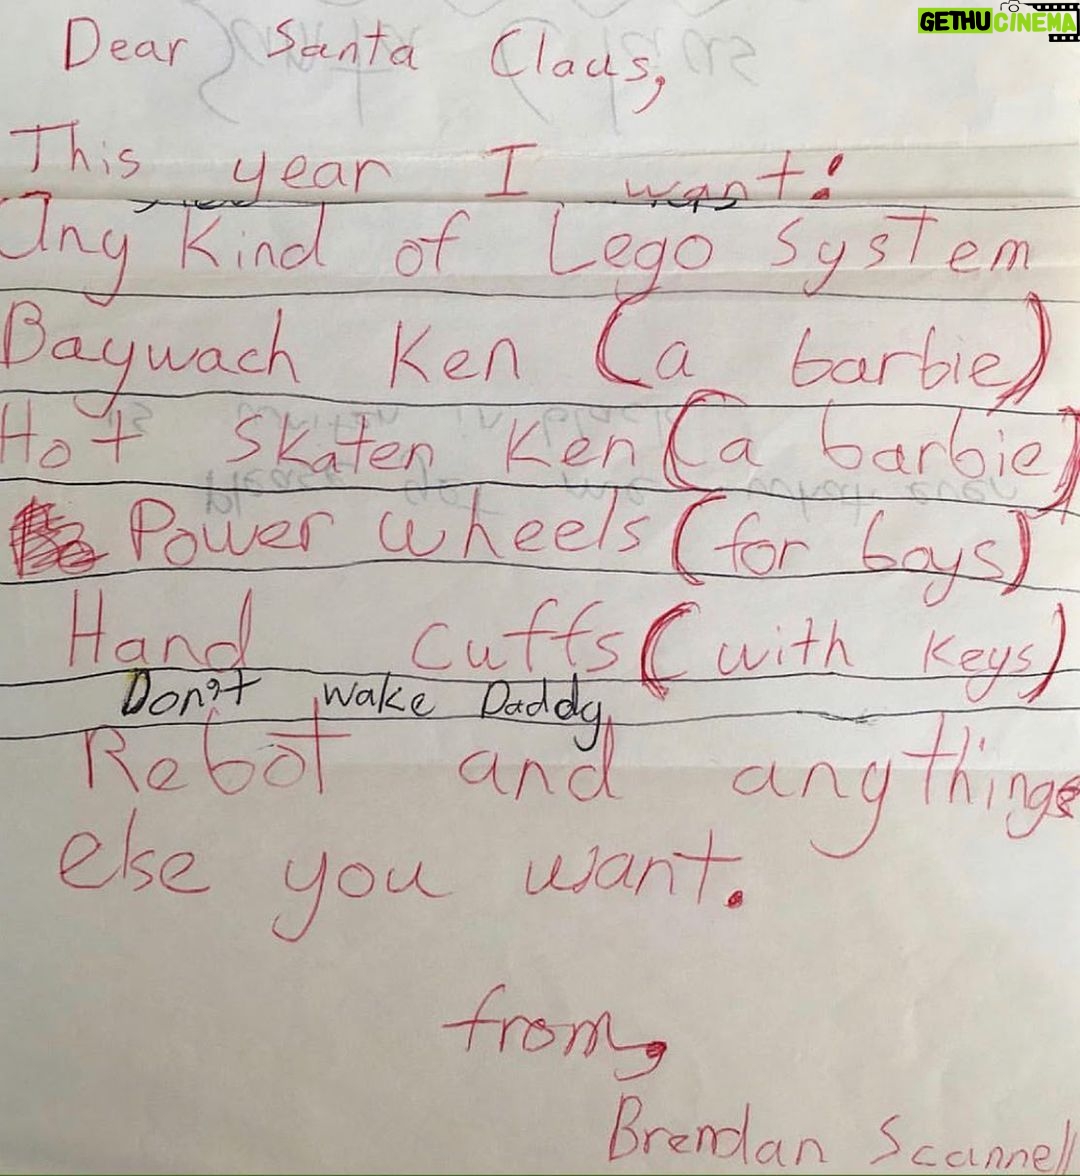 GETHUCINEMA
Dear Santa Claus,
This year I want:
Any Kind of Lego System
Baywach Ken (a barbie)
Hot Skaten Ken (a barbie)
Power Wheels (for boys)
Hand cuffs (with keys)
Don't wake Daddy
Robot and anythings
else you want.
from,
Brendan Scannell